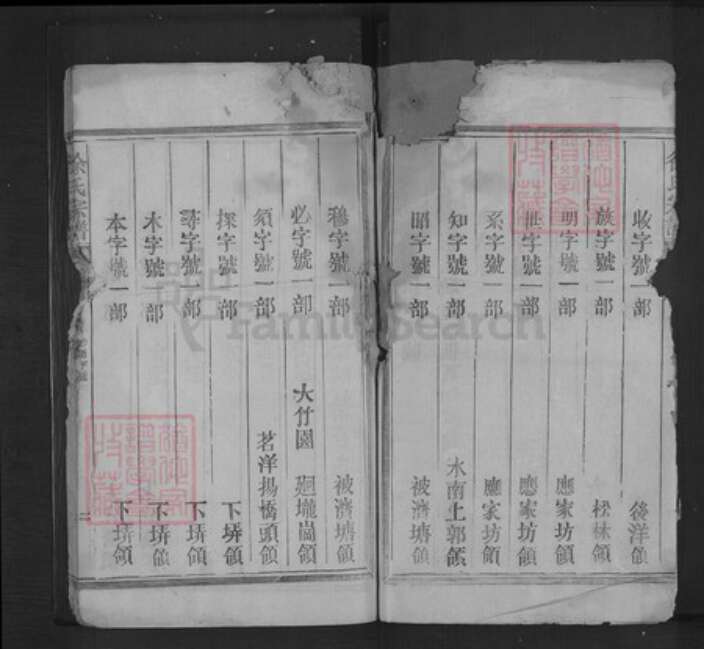 收字號一部 後洋領
族字號一部 松林領
明字號一部 應家坊領
世字號一部 應家坊領
系字號一部 應家坊領
知字號一部 水南上郭領
昭字號一部 被濟塘領
穆字號一部 被濟塘領
必字號一部 大竹園 廻壠崗領
須字號一部 茗洋楊橋頭領
探字號一部 下塝領
尋字號一部 下塝領
木字號一部 下塝領
本字號一部 下塝領
徐氏宗譜
FamilySearch